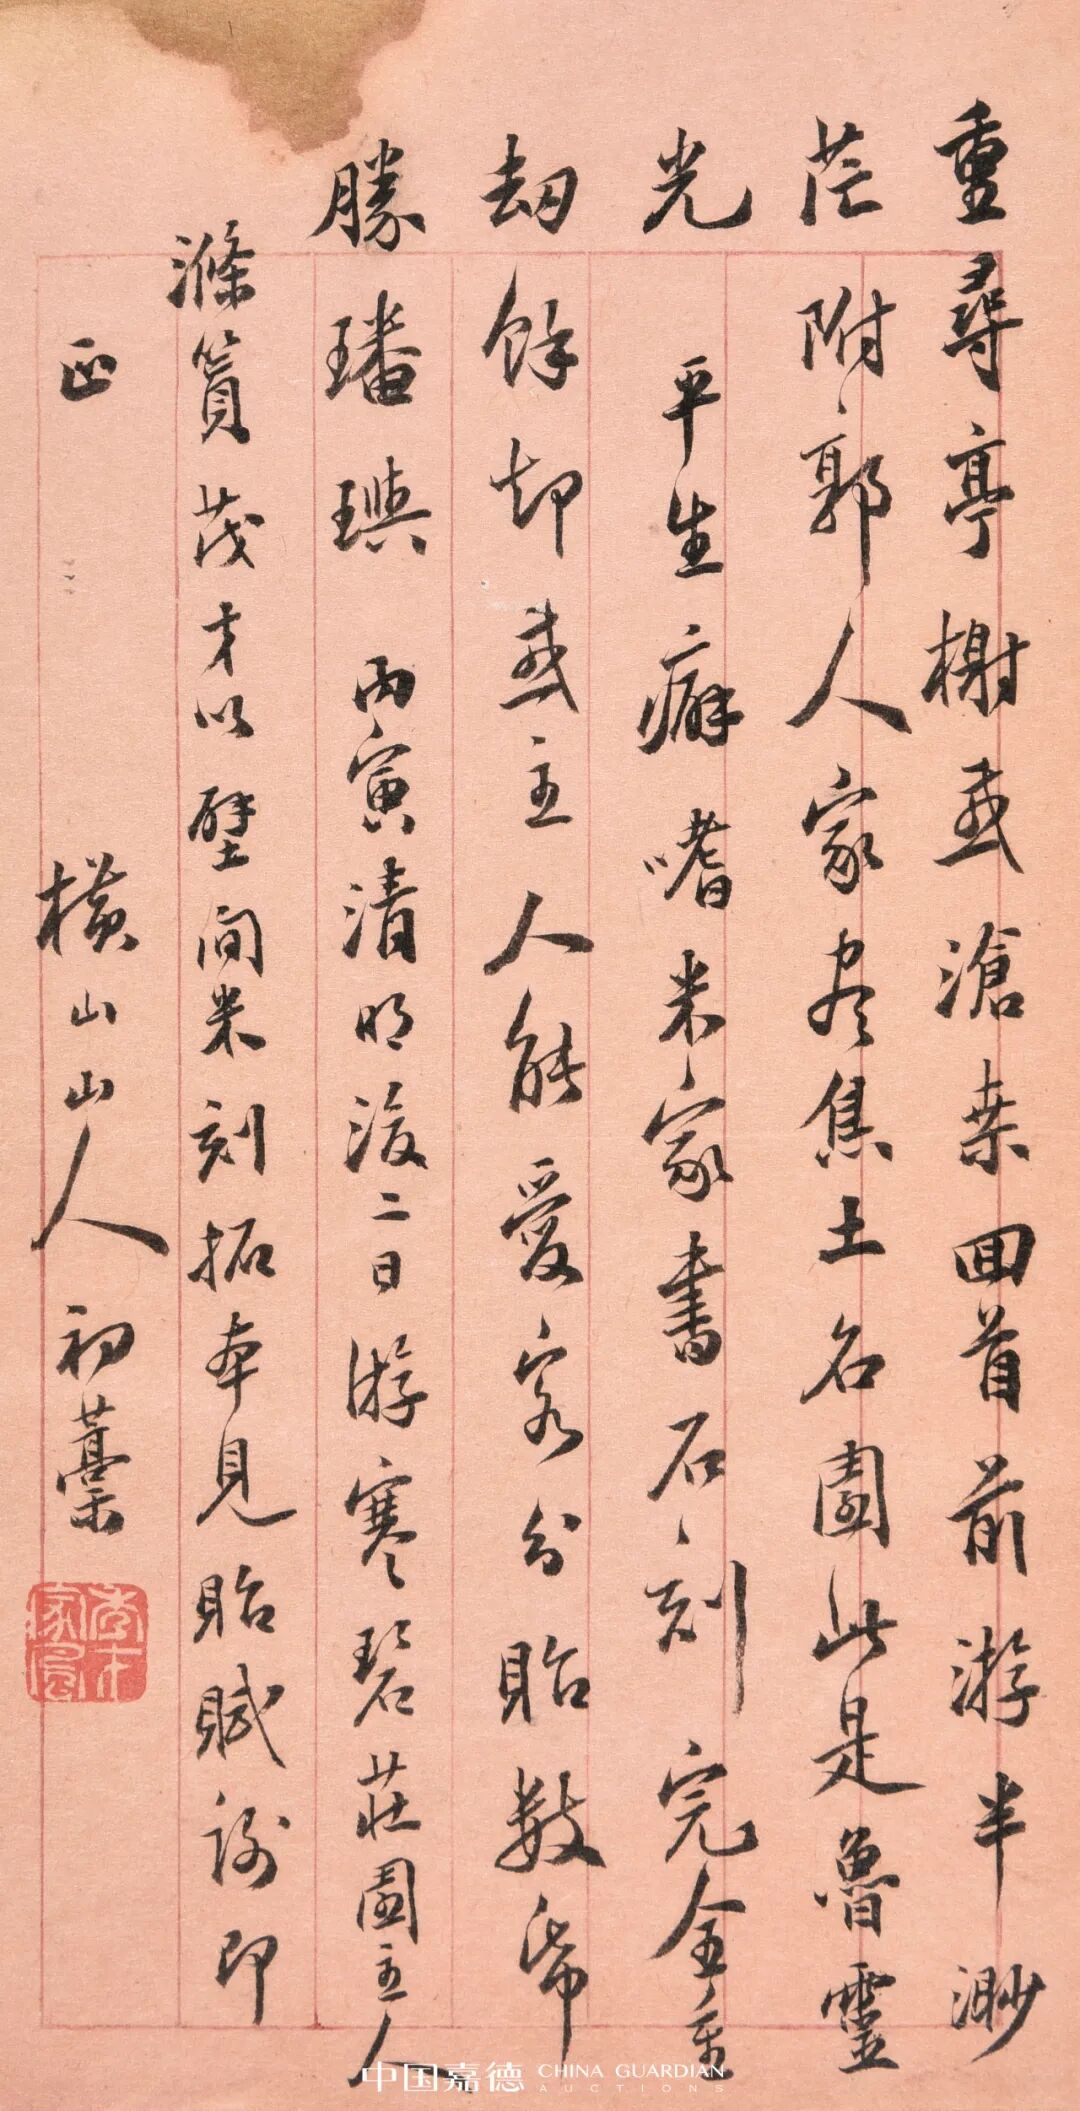 重尋亭榭感滄桑回首前游半渺
茫附郭人家盡焦土名園此是魯靈
光　平生癖嗜米家書石刻完全
劫餘却感主人能愛客分貽數帋
勝璠璵　丙寅清明後二日游寒碧莊園主人
滌篔茂才以壁間米刻拓本見貽賦謝即
正　橫山山人初藁
中国嘉德 CHINA GUARDIAN
AUCTIONS